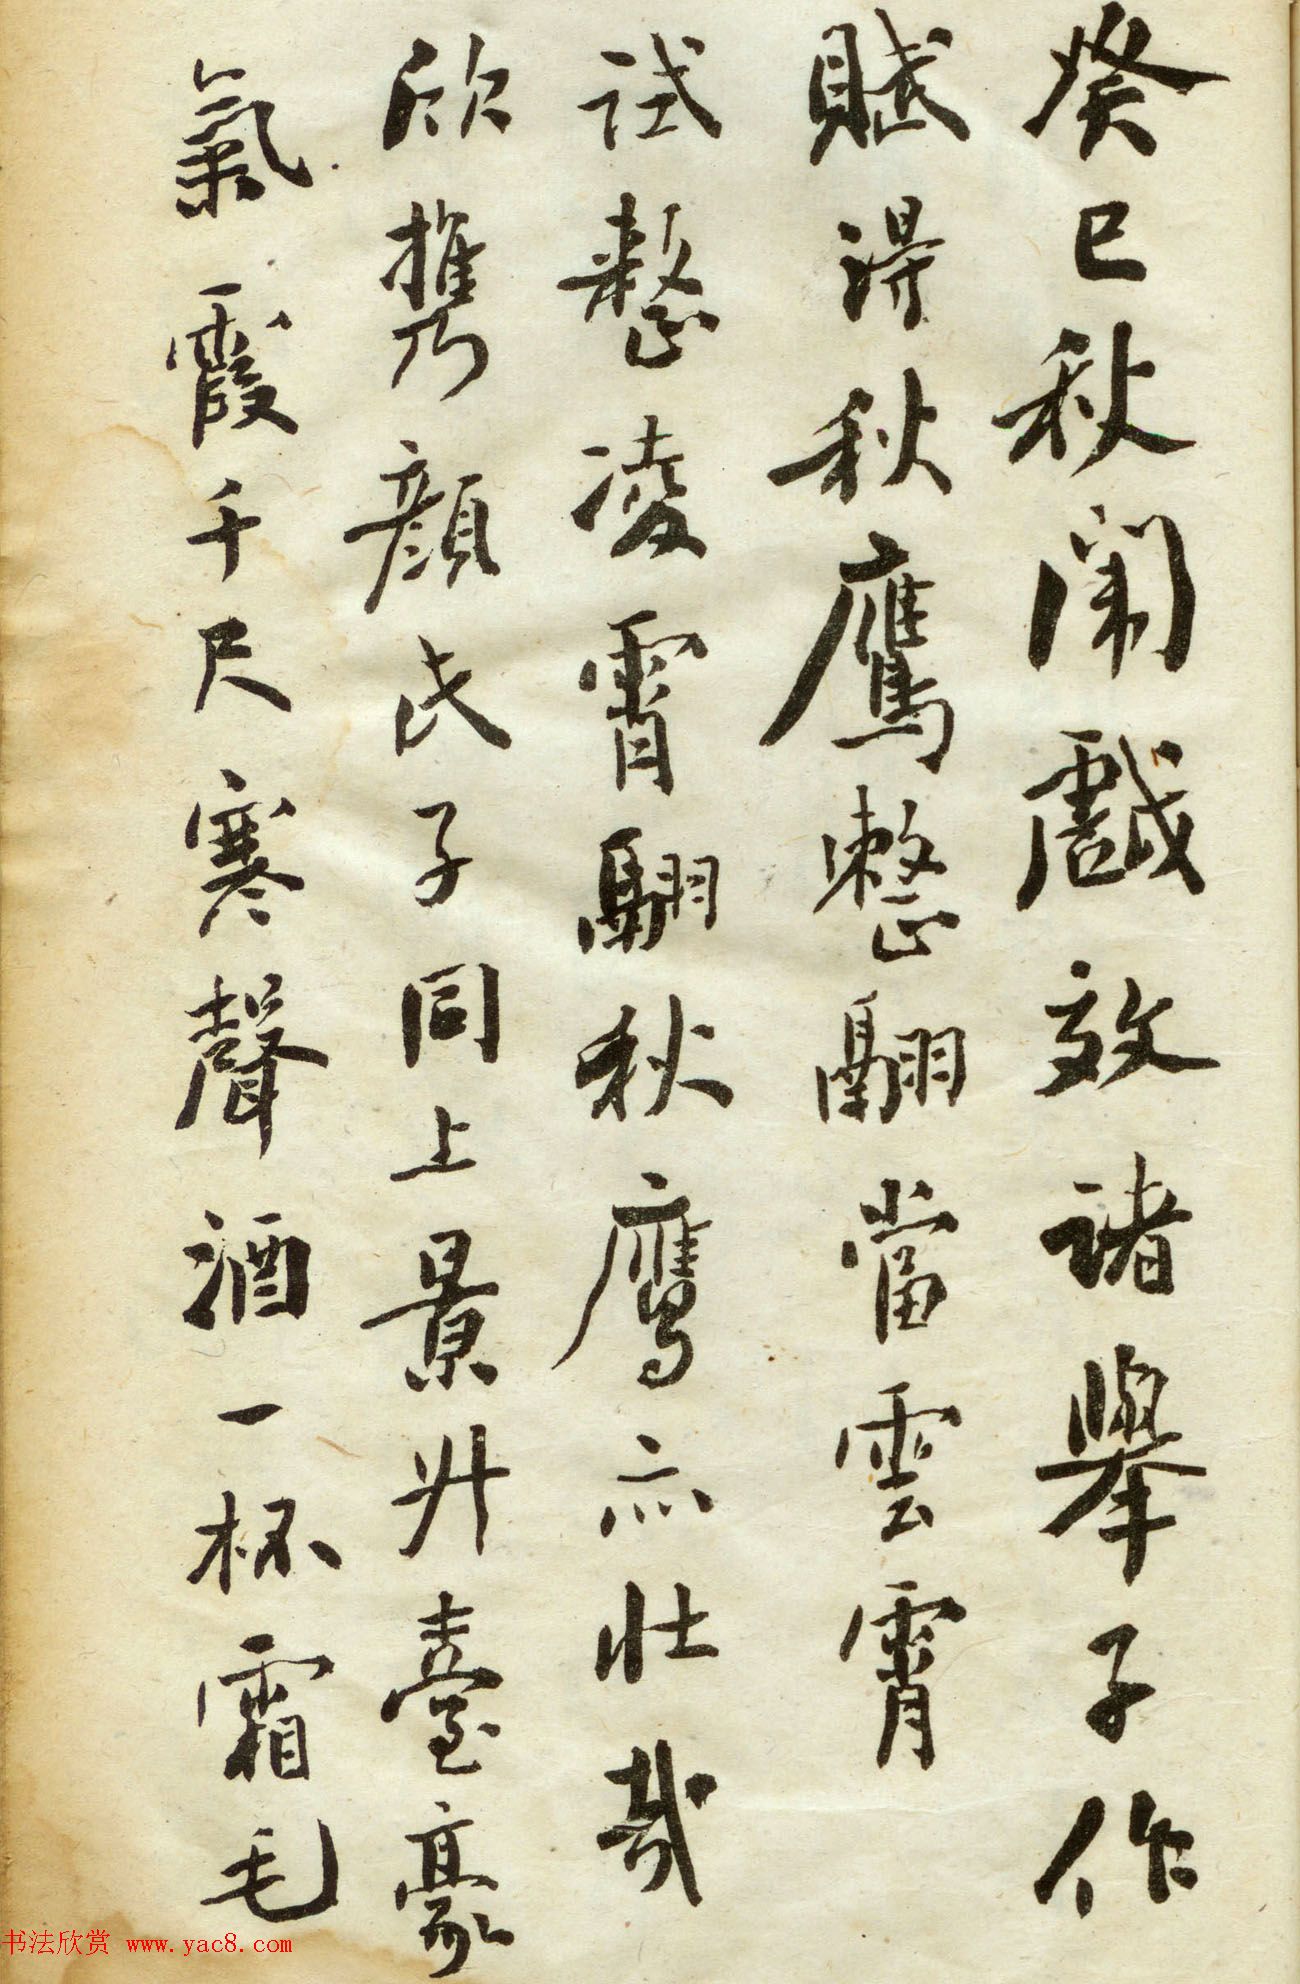 癸巳秋闈戲效諸舉子作
賦得秋鷹整翮當雲霄
試整凌霄翮秋鷹亦壯哉
欣攜顏氏子同上景升臺豪
氣霞千尺寒聲酒一杯霜毛
书法欣赏 www.yac8.com